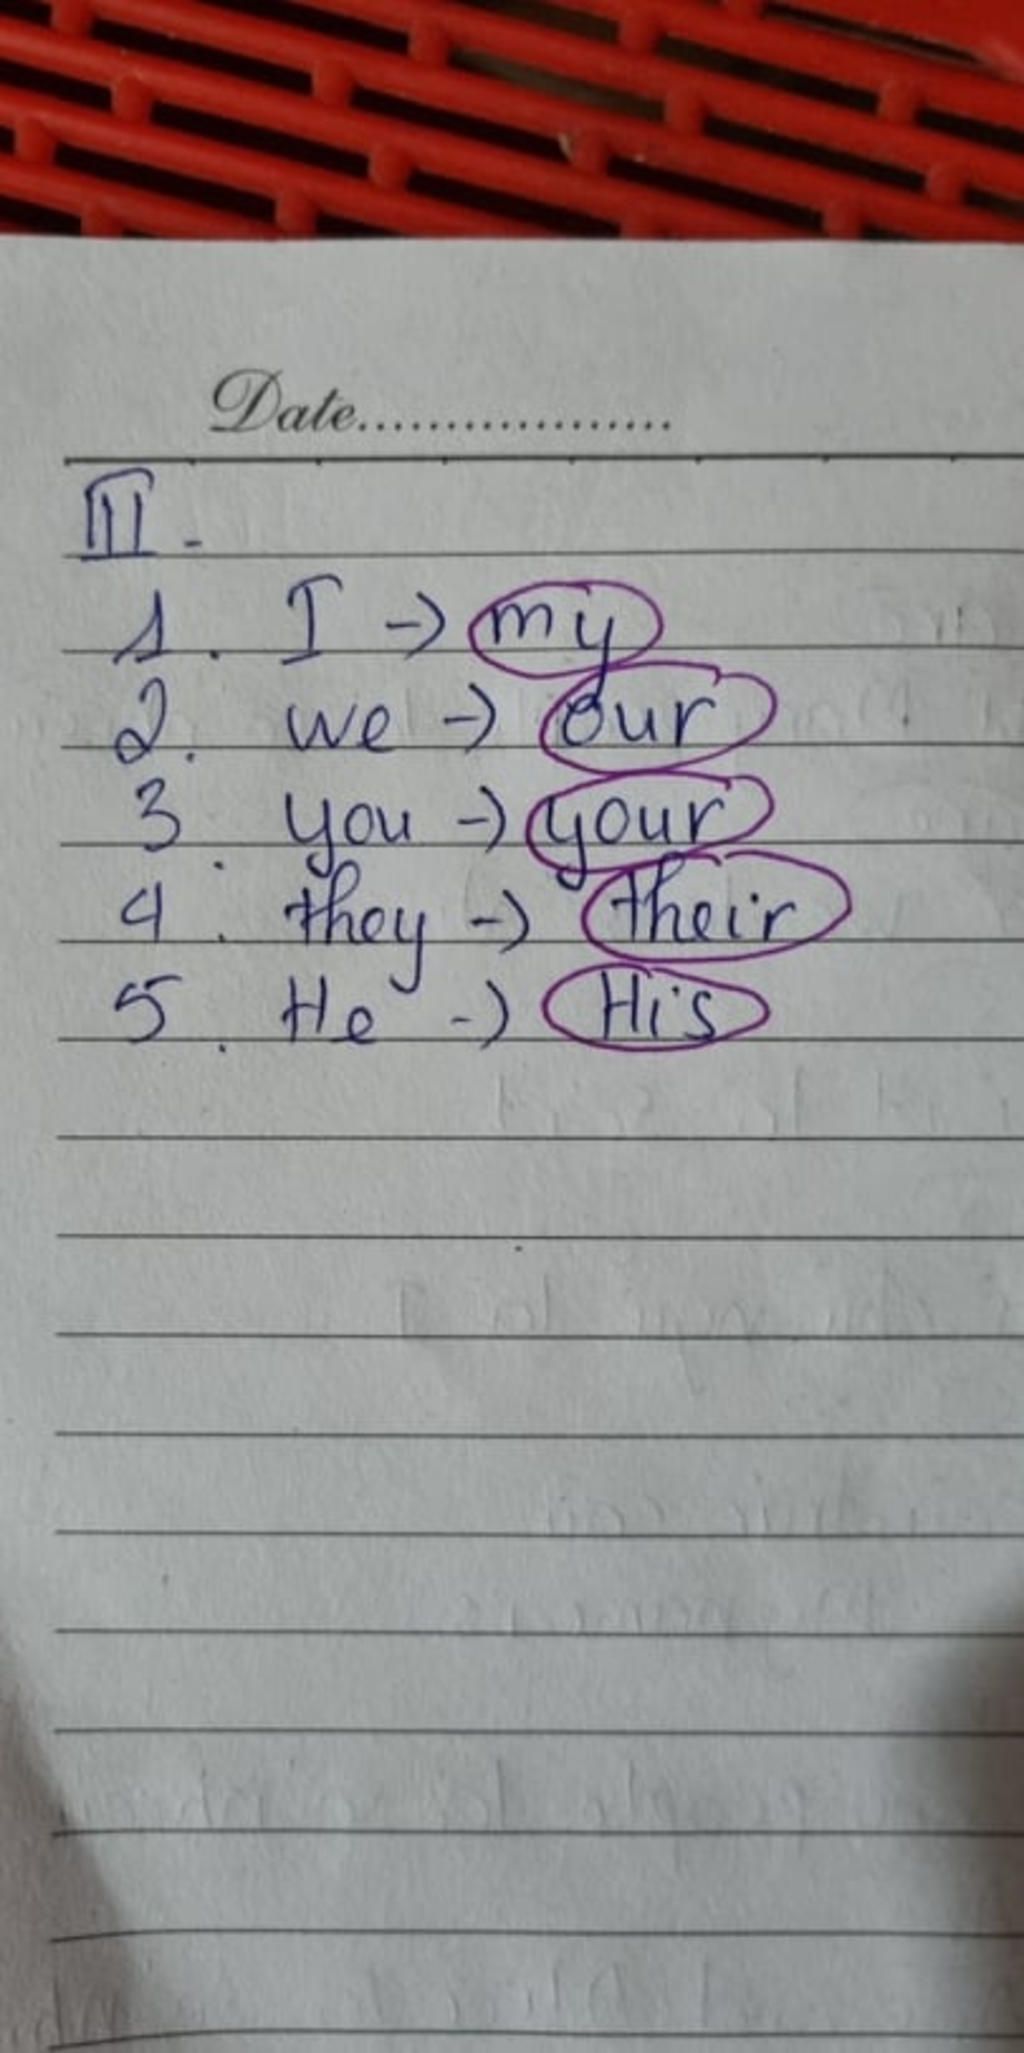 Date..................
III -
1. I -> my
2. we -> our
3. you -> your
4. they -> their
5. He -> His